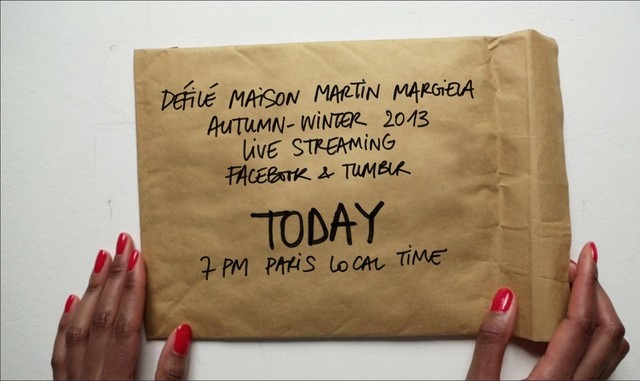 DÉFILÉ MAISON MARTIN MARGIELA
AUTUMN-WINTER 2013
LIVE STREAMING
FACEBOOK & TUMBLR
TODAY
7 PM PARIS LOCAL TIME